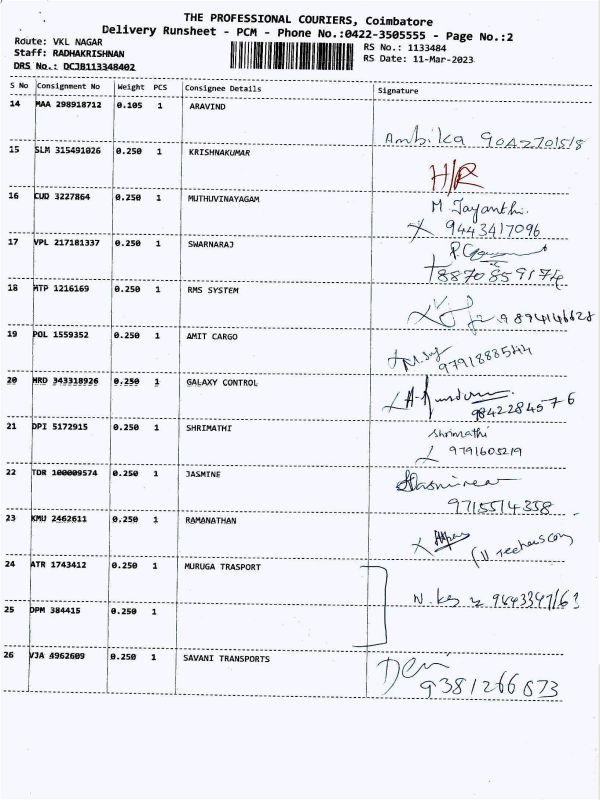 THE PROFESSIONAL COURIERS, Coimbatore
Delivery Runsheet - PCM - Phone No.:0422-3505555 - Page No.:2
Route: VKL NAGAR
Staff: RADHAKRISHNAN
DRS No.: DCJB113348402
RS No.: 1133484
RS Date: 11-Mar-2023
S No Consignment No Weight PCS Consignee Details Signature
14 MAA 298918712 0.105 1 ARAVIND
Ambika
15 SLM 315491026 0.250 1 KRISHNAKUMAR
H/R
16 CUD 3227864 0.250 1 MUTHUVINAYAGAM
M Jayanthi.
9443417096
17 VPL 217181337 0.250 1 SWARNARAJ
8870859174
18 HTP 1216169 0.250 1 RMS SYSTEM
9894146628
19 POL 1559352 0.250 1 AMIT CARGO
9791888544
20 HRD 343318926 0.250 1 GALAXY CONTROL
9842284576
21 DPI 5172915 0.250 1 SHRIMATHI
Shrimathi
9791605219
22 TDR 100009574 0.250 1 JASMINE
9715514358
23 KMU 2462611 0.250 1 RAMANATHAN
24 ATR 1743412 0.250 1 MURUGA TRASPORT
25 DPM 384415 0.250 1
26 VJA 4962609 0.250 1 SAVANI TRANSPORTS
9381266673